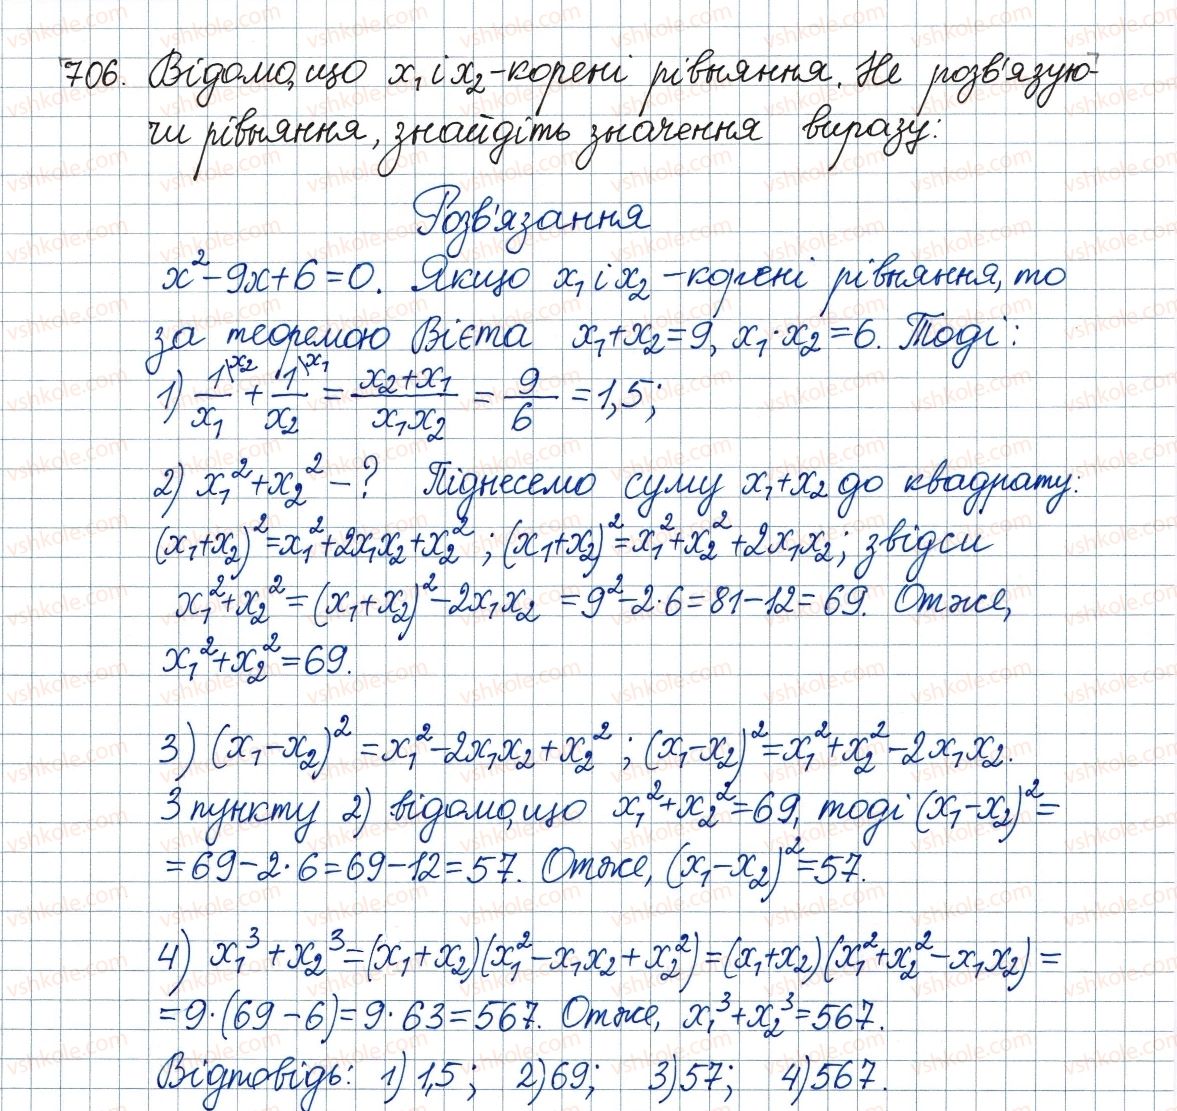 706. Відомо, що x₁ і x₂ - корені рівняння. Не розв'язую-
чи рівняння, знайдіть значення виразу:
Розв'язання
x² - 9x + 6 = 0. Якщо x₁ і x₂ - корені рівняння, то
за теоремою Вієта x₁ + x₂ = 9, x₁ · x₂ = 6. Тоді:
1) 1\x₂/x₁ + 1\x₁/x₂ = (x₂ + x₁)/(x₁x₂) = 9/6 = 1,5;
2) x₁² + x₂² - ? Піднесемо суму x₁ + x₂ до квадрату:
(x₁ + x₂)² = x₁² + 2x₁x₂ + x₂²; (x₁ + x₂)² = x₁² + x₂² + 2x₁x₂; звідси
x₁² + x₂² = (x₁ + x₂)² - 2x₁x₂ = 9² - 2·6 = 81 - 12 = 69. Отже,
x₁² + x₂² = 69.
3) (x₁ - x₂)² = x₁² - 2x₁x₂ + x₂²; (x₁ - x₂)² = x₁² + x₂² - 2x₁x₂.
З пункту 2) відомо, що x₁² + x₂² = 69, тоді (x₁ - x₂)² =
= 69 - 2·6 = 69 - 12 = 57. Отже, (x₁ - x₂)² = 57.
4) x₁³ + x₂³ = (x₁ + x₂)(x₁² - x₁x₂ + x₂²) = (x₁ + x₂)(x₁² + x₂² - x₁x₂) =
= 9·(69 - 6) = 9·63 = 567. Отже, x₁³ + x₂³ = 567.
Відповідь: 1) 1,5; 2) 69; 3) 57; 4) 567.